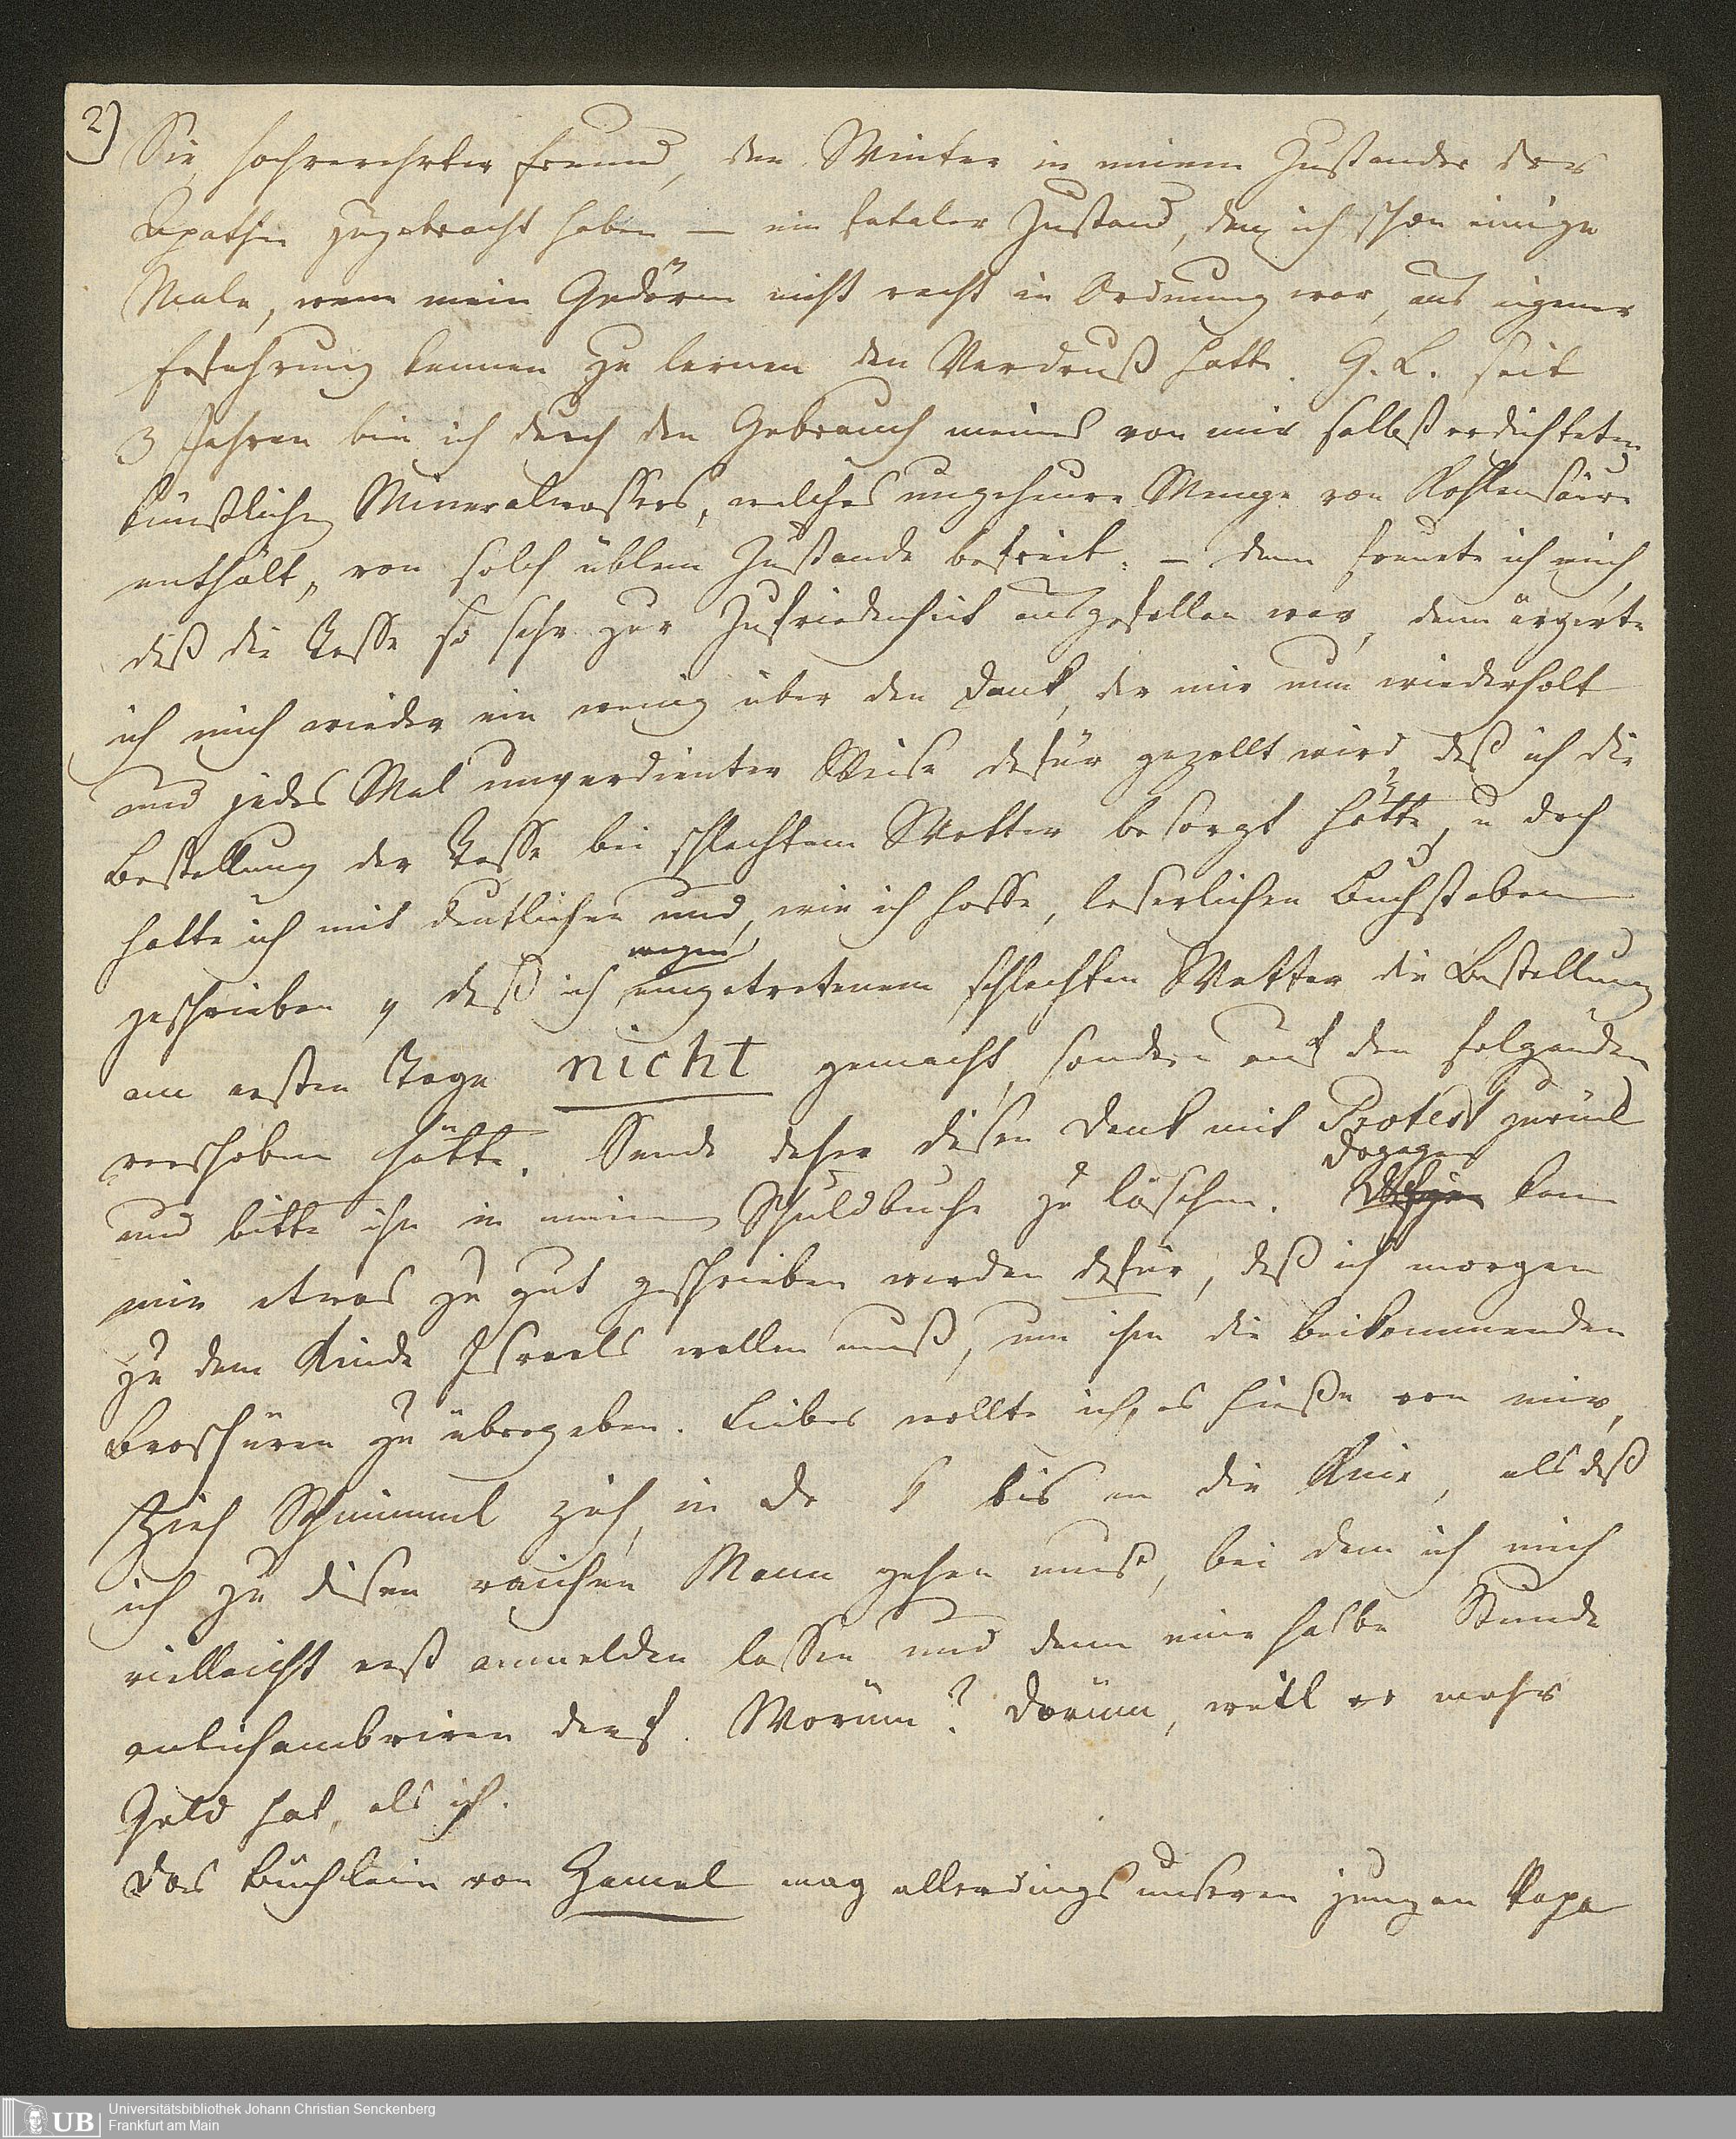 2)
Sie, hochverehrter Freund, den Winter in einem Zustande der
Apathie zugebracht haben — ein fataler Zustand, den ich schon einige
Male, wenn mein Gedärm nicht recht in Ordnung war, aus eigener
Erfahrung kennen zu lernen den Verdruß hatte. G. L. seit
3 Jahren bin ich durch den Gebrauch meines von mir selbst erdichteten
künstlichen Mineralwassers, welches ungeheure Menge von Kohlensäure
enthält, von solch üblem Zustande befreit. – dann freuete ich mich,
daß die Tasse so sehr zur Zufriedenheit ausgefallen war, dann ärgerte
ich mich wieder ein wenig über den Dank, der mir nun wiederholt
und jedes Mal unverdienter Weise dafür gezollt wird, daß ich die
Bestellung der Tasse bei schlechtem Wetter besorgt hätte, u doch
hatte ich mit deutlichen und, wie ich hoffe, leserlichen Buchstaben
geschrieben, daß ich wegen eingetretenem schlechten Wetter die Bestellung
am ersten Tage nicht gemacht, sondern auf den folgenden
verschoben hätte. Sende daher diesen Dank mit Protest zurück
und bitte ihn in meinem Schuldbuche zu löschen. Dagegen kann
mir etwas zu gut geschrieben werden dafür, daß ich morgen
zu dem Kinde Israels wallen muß, um ihm die beikommenden
Broschüren zu übergeben. Lieber wollte ich, es hieße von mir,
Zieh Schimmel zieh, in D bis an die Knie, als daß
ich zu diesen reichen Mann gehen muß, bei dem ich mich
vielleicht erst anmelden lassen und dann eine halbe Stunde
antichambriren darf. Warum? Darum, weil er mehr
Geld hat, als ich.
Das Büchlein von Hamel mag allerdings unseren jungen Papa
Universitätsbibliothek Johann Christian Senckenberg
Frankfurt am Main
UB